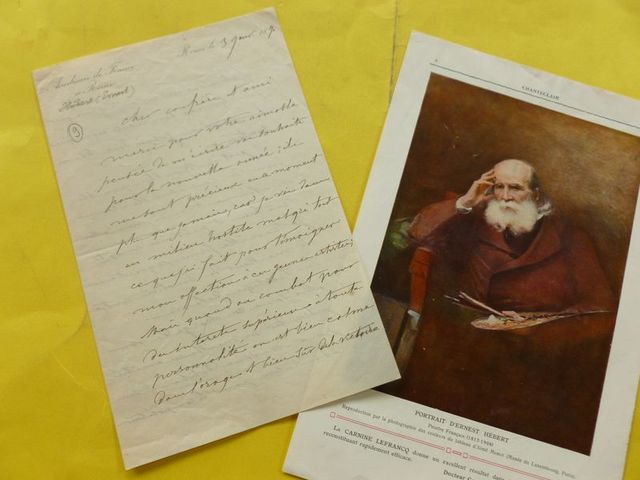 Rome le 3 Janv 189
Académie de France
à Rome
Hébert (Ernest)
9
Cher confrère et ami
merci pour votre aimable
pensée de m'écrire vos souhaits
pour la nouvelle année; ils
me sont précieux en ce moment
plus que jamais, car je vis dans
un milieu hostile malgré tout
ce que j'ai fait pour témoigner
mon affection à ces jeunes artistes;
Mais quand on combat pour
des intérêts supérieurs à toute
personnalité on est bien calme
dans l'orage et bien sûr de la victoire
CHANTECLAIR
PORTRAIT D'ERNEST HÉBERT
Peintre Français (1817-1908)
Reproduction par la photographie des couleurs du tableau d'Aimé Morot (Musée du Luxembourg, Paris).
La CARNINE LEFRANCQ donne un excellent résultat dans
reconstituant rapidement efficace.
Docteur